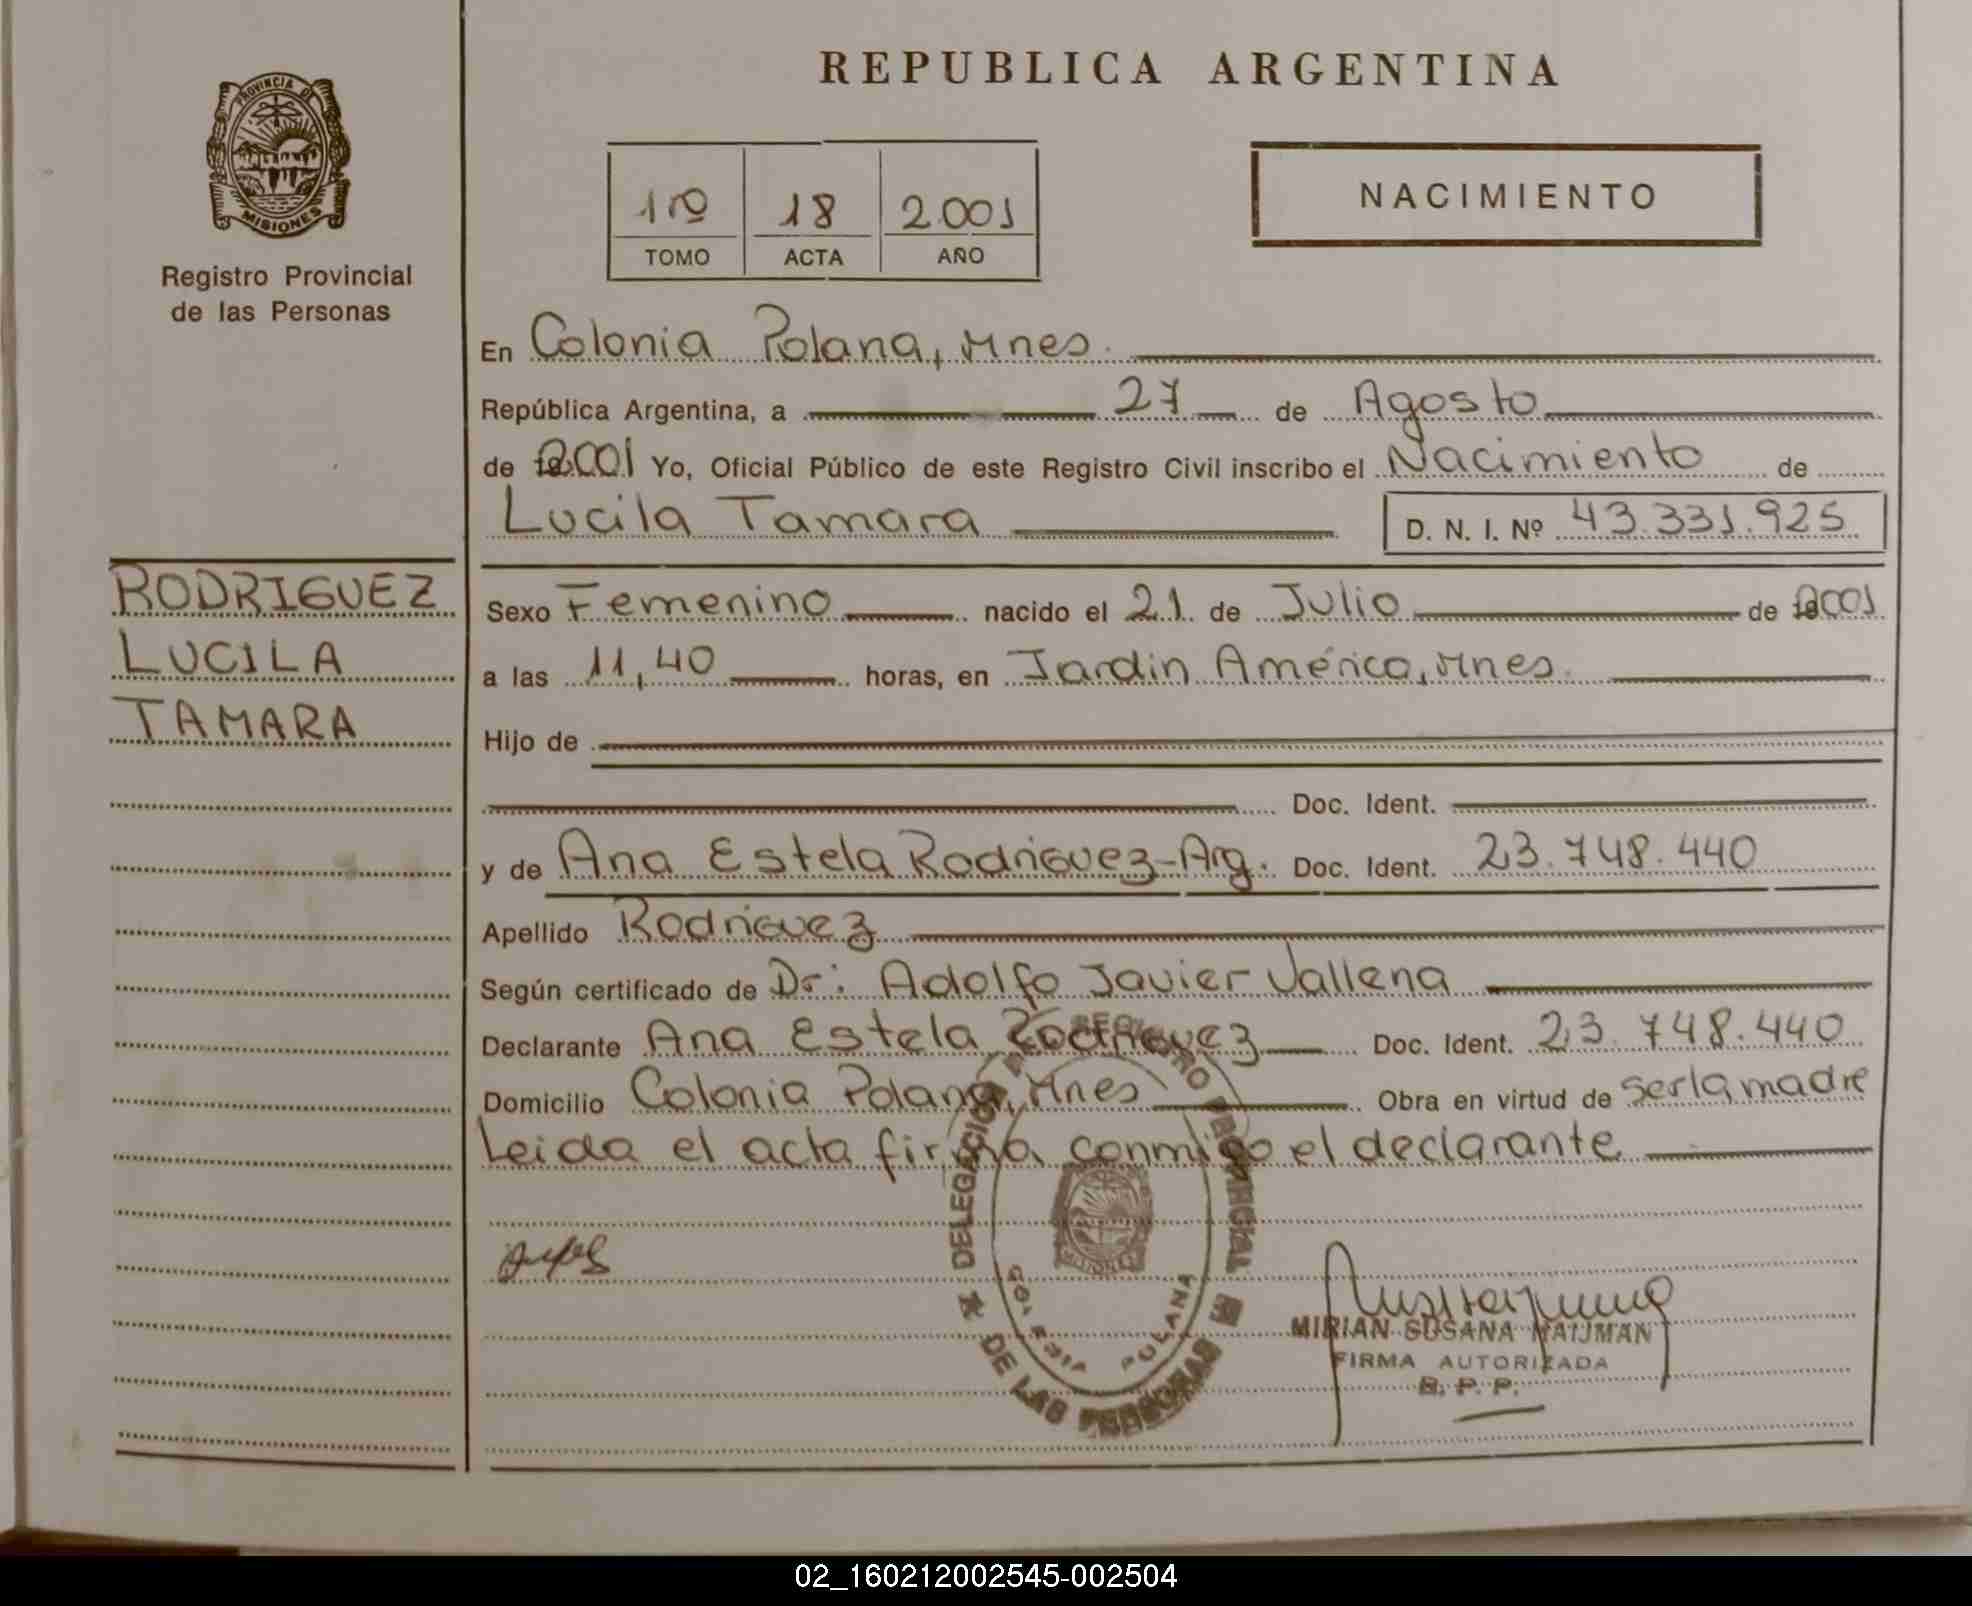 REPUBLICA ARGENTINA
PROVINCIA DE
MISIONES
Registro Provincial
de las Personas
1º 18 2.001
TOMO ACTA AÑO
NACIMIENTO
En Colonia Polana, Mnes.
República Argentina, a 27 de Agosto
de 2001 Yo, Oficial Público de este Registro Civil inscribo el Nacimiento de
Lucila Tamara D. N. I. Nº 43.331.925
RODRIGUEZ
LUCILA
TAMARA
Sexo Femenino nacido el 21 de Julio de 2001
a las 11,40 horas, en Jardin América, Mnes.
Hijo de
Doc. Ident.
y de Ana Estela Rodriguez-Arg. Doc. Ident. 23.748.440
Apellido Rodriguez
Según certificado de Dr: Adolfo Javier Vallena
Declarante Ana Estela Rodriguez Doc. Ident. 23.748.440
Domicilio Colonia Polana, Mnes Obra en virtud de ser la madre
Leida el acta firma conmigo el declarante
DELEGACION REGISTRO PROVINCIAL
DE LAS PERSONAS
COLONIA POLANA
MISIONES
MIRIAN SUSANA HAIJMAN
FIRMA AUTORIZADA
R. P. P.
02_160212002545-002504